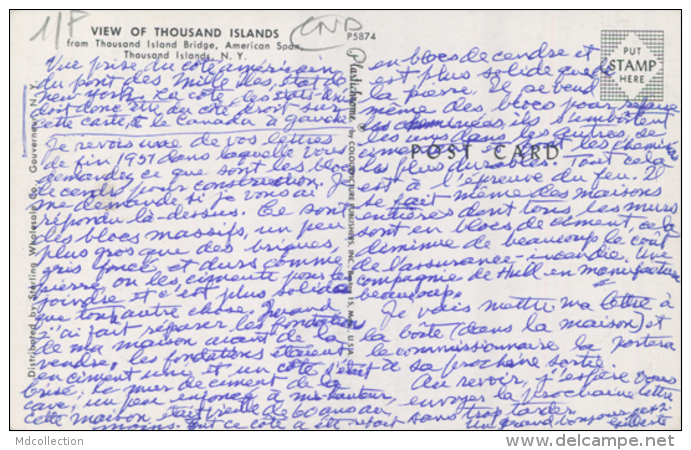 1/P
CND
VIEW OF THOUSAND ISLANDS
from Thousand Island Bridge, American Span,
Thousand Islands, N. Y.
P5874
PUT
STAMP
HERE
POST CARD
Distributed by Sterling Wholesale Co., Gouverneur, N. Y.
Plastichrome by COLOURPICTURE PUBLISHERS, INC., Boston 15, Mass., U.S.A.
Vue prise du côté américain
du pont des Mille Iles, état de
New-York. La côte les états-unis
dont donc être du côté droit sur
cette carte, et le Canada à gauche
Je revois une de vos lettres
de fin 1951 dans laquelle vous
demandez ce que sont les blocs
de cendre pour construction. Je
me demande si je vous ai
répondu là-dessus. Ce sont
des blocs massifs, un peu
plus gros que des briques,
gris foncé et durs comme
pierre, on les cimente pour les
joindre et c'est plus solide
que tout autre chose. Quand
j'ai fait réparer les fondations
de ma maison avant de la
vendre, les fondations étaient
en ciment uni et un côté s'était
brisé; le mur de ciment de la
cave, un peu enfoncé à mi-hauteur,
cette maison était vieille de 60 ans au
moins. Tout ce côté a été refait
en blocs de cendre et
est plus solide que de
la pierre. Il se vend
même des blocs pour refaire
les cheminées, ils s'emboîtent
les uns dans les autres, se
cimentent et font les cheminées
les plus durables. Tout cela
est à l'épreuve du feu. Il
se fait même des maisons
entières dont tous les murs
sont en blocs de ciment, cela
diminue de beaucoup le coût
de l'assurance-incendie. Une
compagnie de Hull en manufacture
beaucoup.
Je vais mettre ma lettre à
la boîte (dans la maison) et
le commissionnaire la portera
à sa prochaine sortie.
Au revoir, j'espère vous
envoyer la prochaine lettre
sans trop tarder.
Un grand bonjour
Gilberte
Mdcollection
delcampe.net